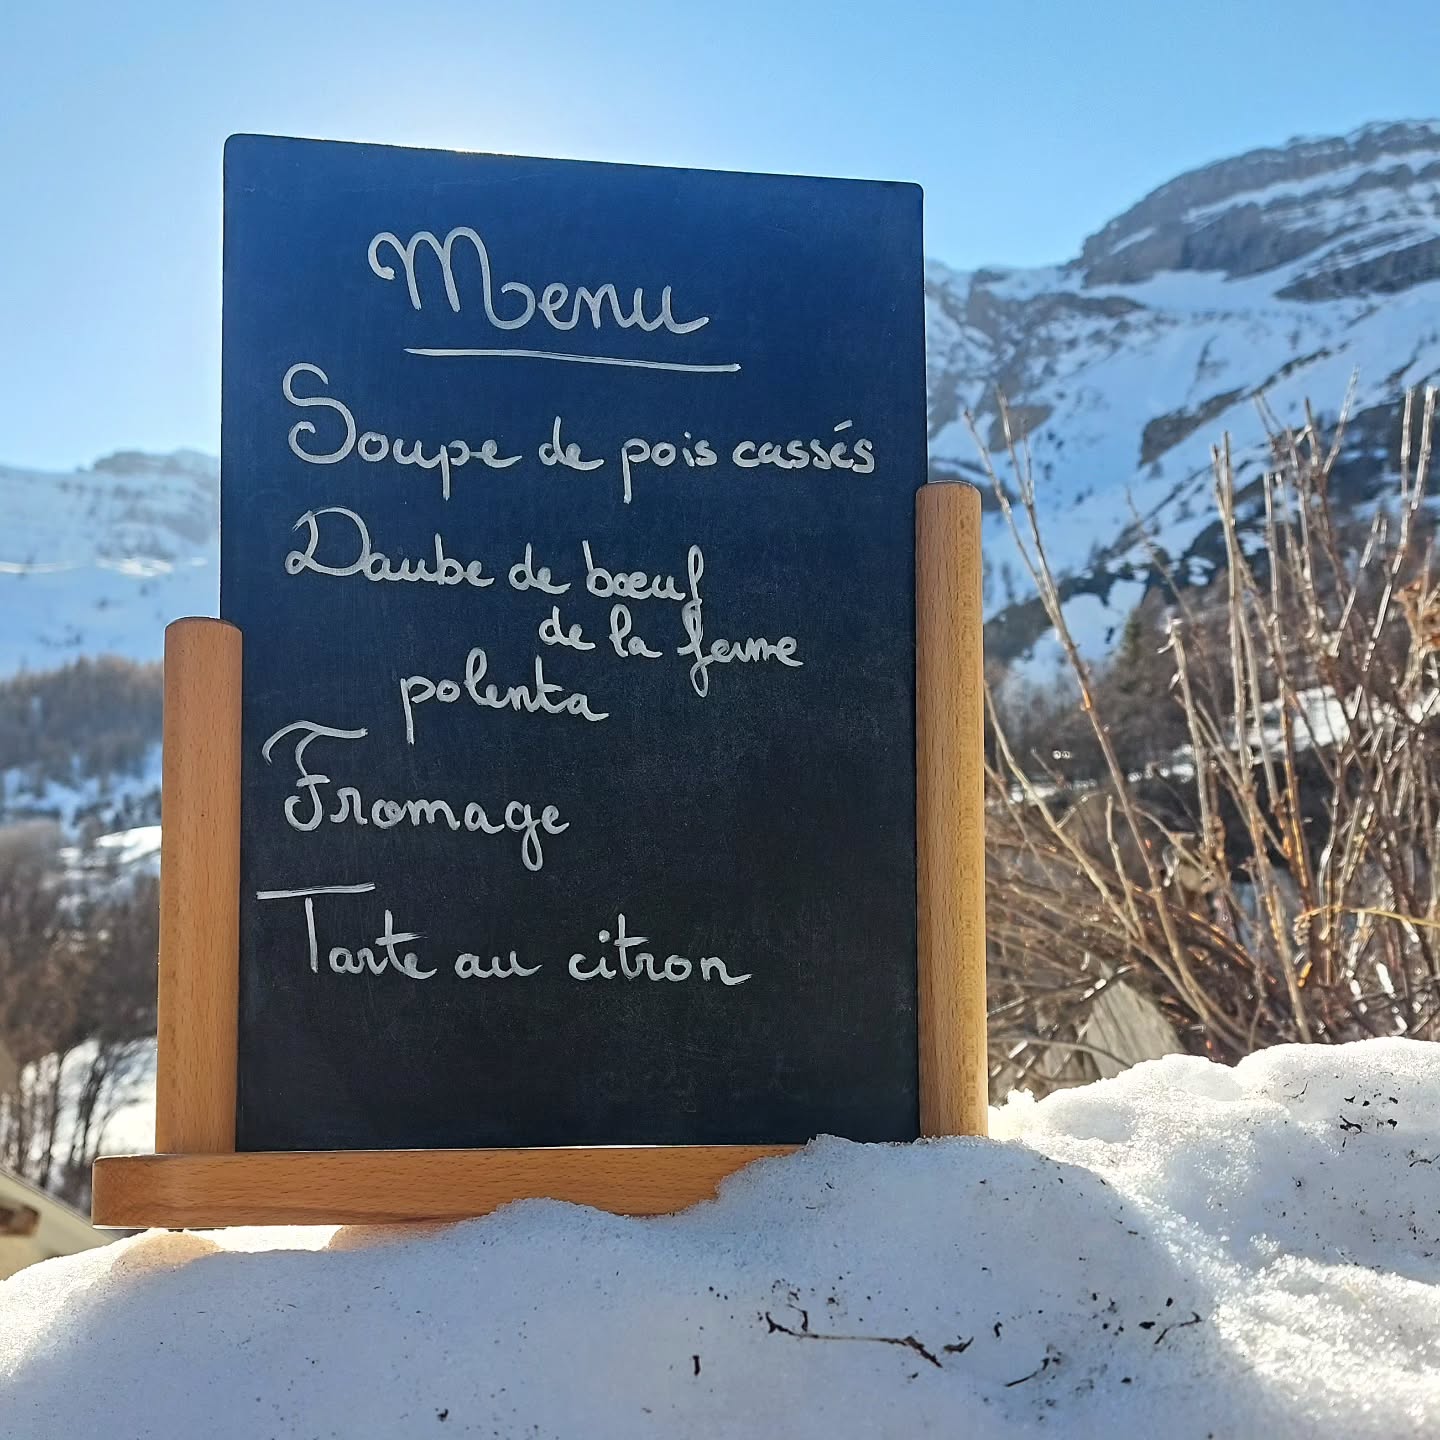 Menu
Soupe de pois cassés
Daube de bœuf
de la ferme
polenta
Fromage
Tarte au citron